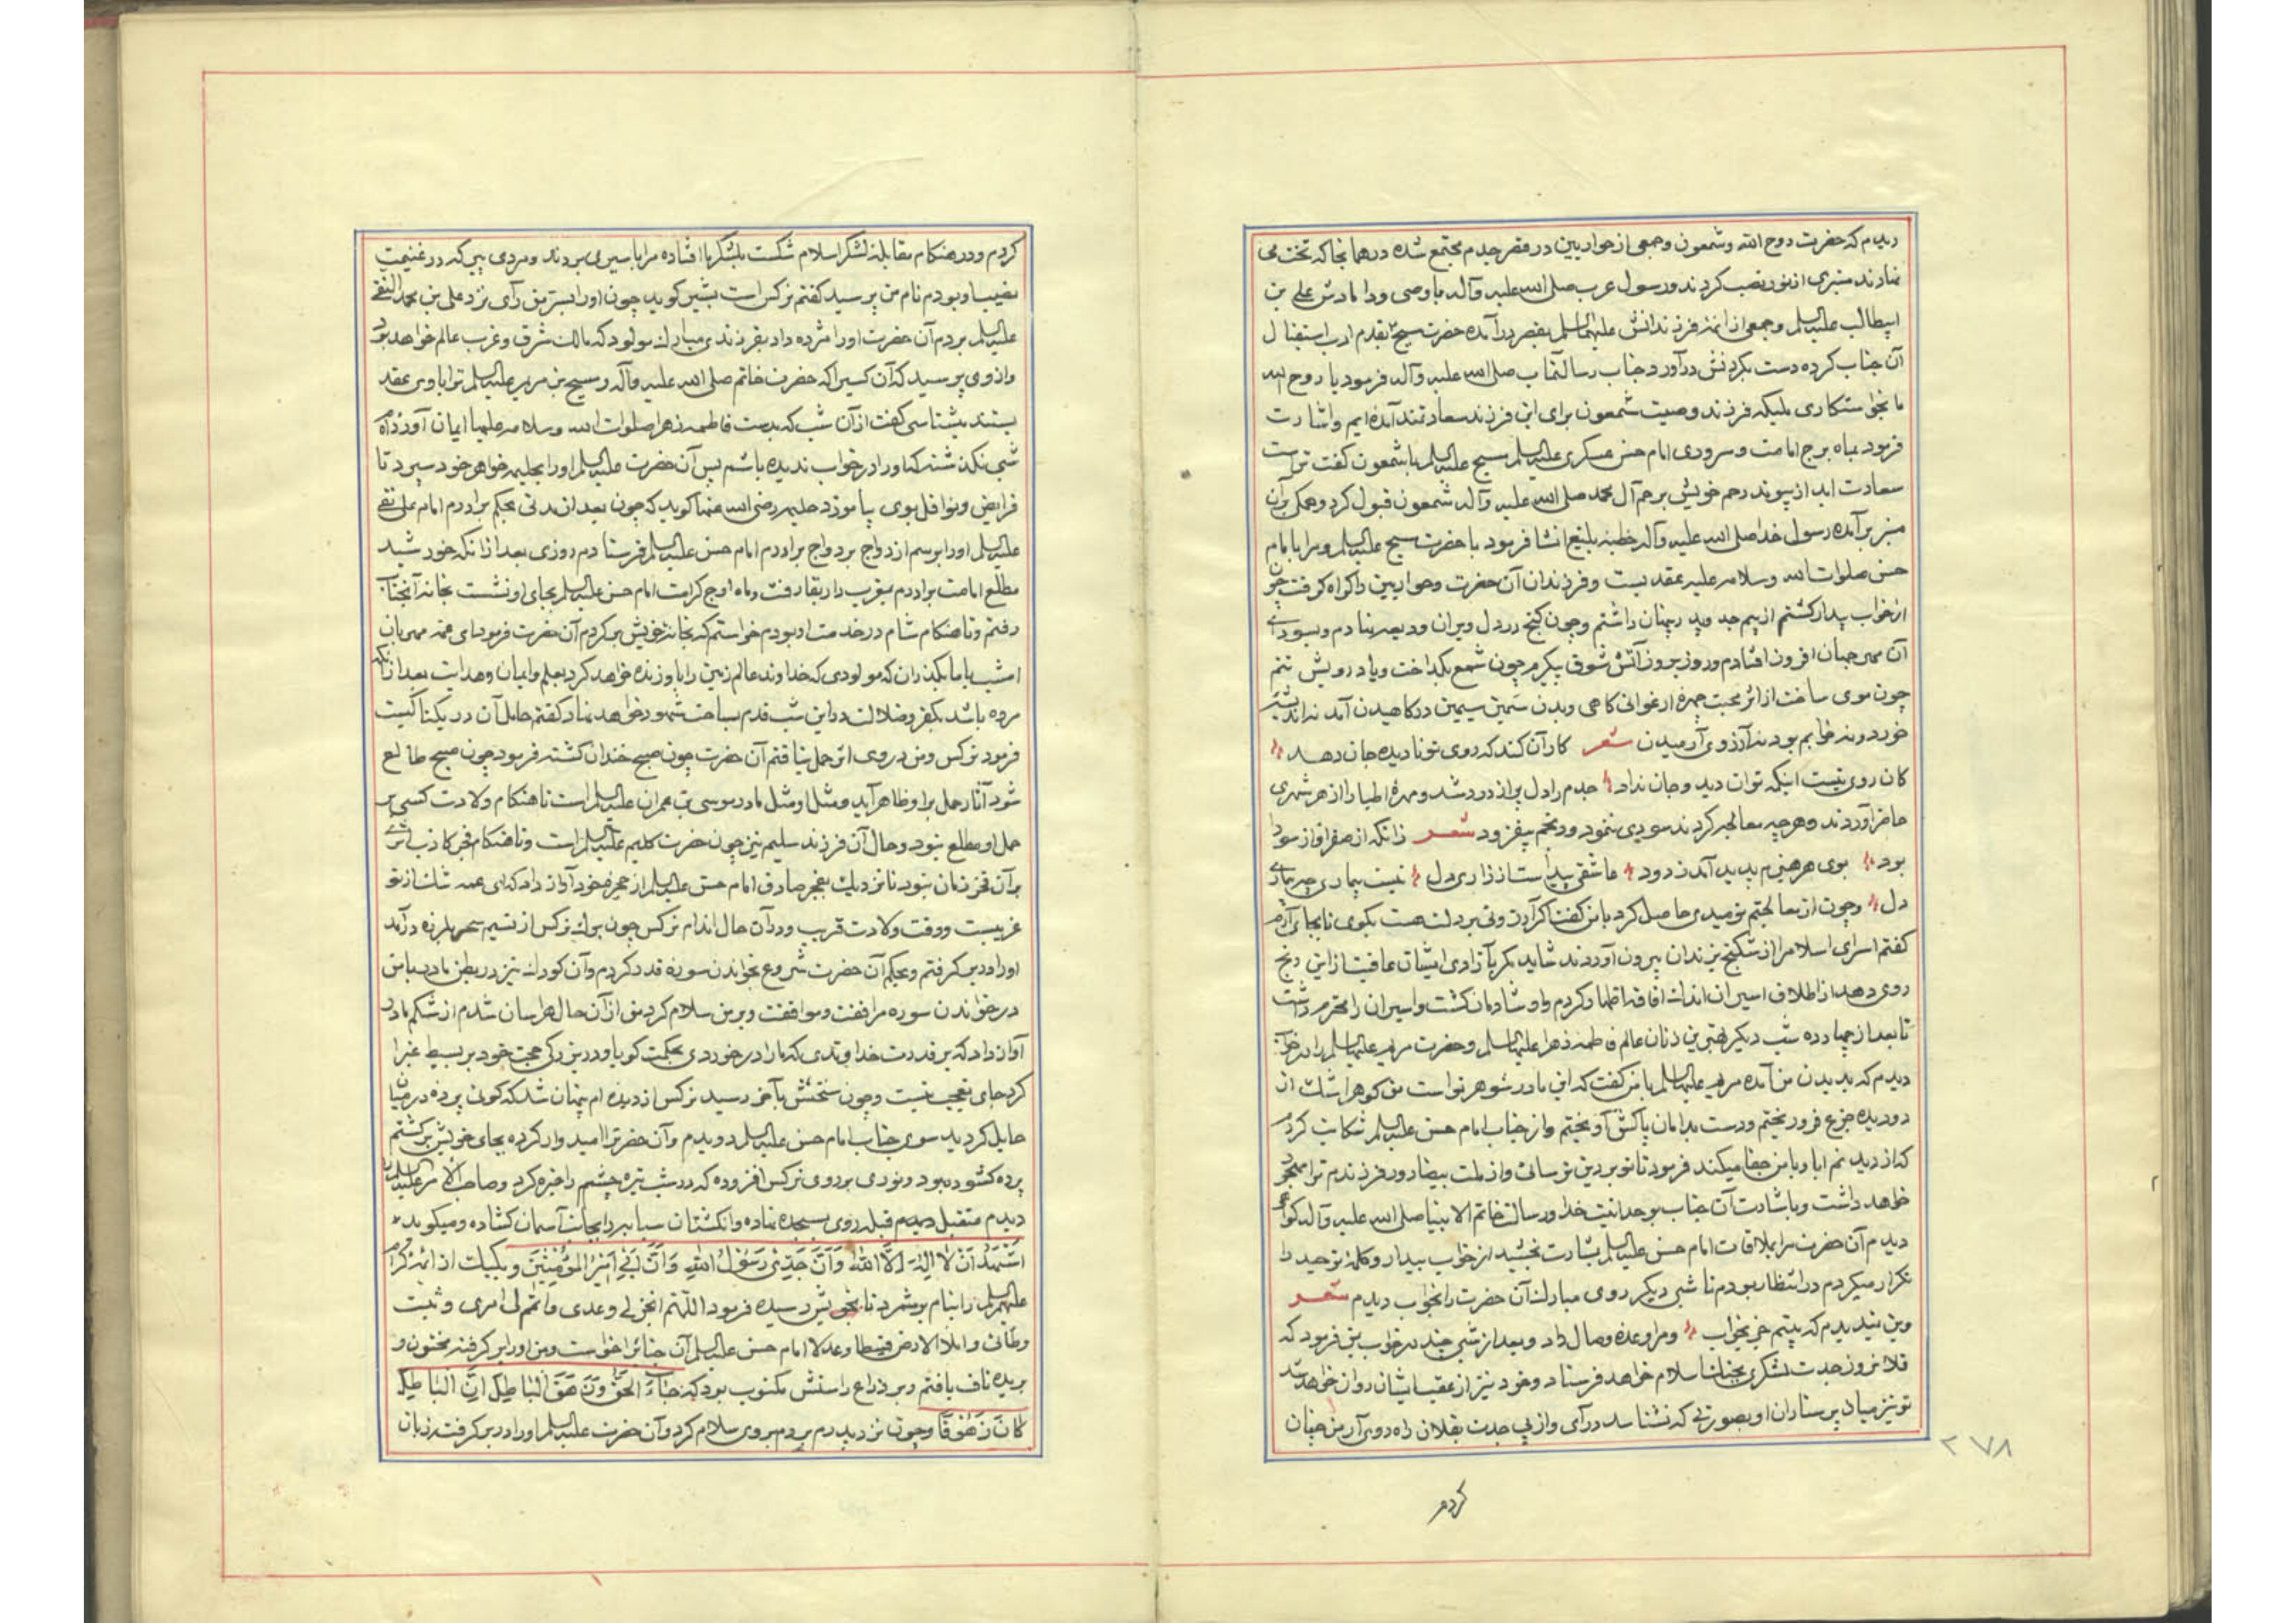 دیدم که حضرت روح الله و شمعون و جمعی از حواریین در قصر جدم مجتمع شده در همانجا که تخت می
نهادند منبری از نور نصب کردند و رسول عرب صلی الله علیه وآله با وصی و دامادش علی بن
ابیطالب علیه السلم و جمعی از ائمه فرزندانش علیهم السلم بقصر درآمده حضرت مسیح تقدم ادب استقبال
آن جناب کرده دست بگردنش درآورد جناب رسالتمآب صلی الله علیه وآله فرمود یا روح الله
ما بخواستکاری ملیکه فرزند وصیت شمعون برای این فرزند سعادتمند آمده‌ایم واشارت
فرمود بماه برج امامت و سروری امام حسن عسکری علیه السلم مسیح علیه السلم با شمعون گفت تراست
سعادت ابد از پیوند رحم خویش برحم آل محمد صلی الله علیه وآله شمعون قبول کرد و همگی بران
منبر برآمده رسول خدا صلی الله علیه وآله خطبه بلیغ انشا فرمود با حضرت مسیح علیه السلم و مرا بامام
حسن صلوات الله وسلامه علیه عقد بست و فرزندان آن حضرت و حواریین را گواه گرفت چون
از خواب بیدار گشتم از بیم جد و پدر پنهان داشتم و چون گنج در دل ویران ودیعه نهادم و بسودای
آن مهر جهان افروز افتادم و روز بروز آتش شوق پیکرم چون شمع بگداخت و یاد رویش تنم
چون موی ساخت از اثر محبت چهره ارغوانی کاهی و بدن سمین سیمین در کاهیدن آمد نه اندیشه
خورد و نه خوابم بود نه آرزوی آرمیدن شعر کار آن کند که روی تو نادیده جان دهد
کان روی نیست اینکه توان دید و جان نداد جدم را دل پر از درد شد و مهره اطبا را از هر شهری
حاضر آوردند و هرچه معالجه کردند سودی ننمود و رنجم بیفزود شعر زانکه از صفرا و از سودا
بود بوی هر هیزم پدید آمد ز دود عاشقی پیداست از زاری دل نیست بیماری چو بیماری
دل و چون از معالجتم نومیدی حاصل کرد با من گفت اگر آرزوئی بر دلت هست بگوی تا بجای آرم
گفتم اسرای اسلام را از شکنج زندان بیرون آوردند شاید مگر بآزادی ایشان عافیت از این رنج
روی دهد از اطلاق اسیران اندک افاقه اظهار کردم و او شادمان گشت و اسیران را محترم داشت
تا بعد از چهارده شب دیگر بهترین زنان عالم فاطمه زهرا علیها السلم و حضرت مریم علیها السلم را در خواب
دیدم که بدیدن من آمده مریم علیها السلم با من گفت که این مادر شوهر تو است من گوهر اشک از
دو دیده جزع فرو ریختم و دست بدامان پاکش آویختم و از جناب امام حسن علیه السلم شکایت کردم
که از دیدنم ابا و با من جفا میکند فرمود تا تو بر دین ترسائی و از ملت بیضا دور فرزندم ترا مهجور
خواهد داشت و باشارت آن جناب بوحدانیت خدا و رسالت خاتم الانبیا صلی الله علیه وآله گواهی
دیدم آن حضرت مرا بملاقات امام حسن علیه السلم بشارت بخشید از خواب بیدار و کلمه توحید را
تکرار میکردم در انتظار بودم تا شبی دیگر روی مبارک آن حضرت را بخواب دیدم شعر
وین شنیدم که بینم خور بخواب و مرا وعده وصال داد و بعد از شبی چند در خواب بمن فرمود که
فلان روز جدت لشکری بجنگ اسلام خواهد فرستاد و خود نیز از عقب ایشان روان خواهد شد
تو نیز میان پرستاران او بصورتی که نشناسند درآی و از پی جدت بفلان راه روی آر من چنان
کردم
۲۷۸
کردم و در هنگام مقابله لشکر اسلام شکست بلشکر ما افتاده مرا باسیری بردند و مردی پیر که در غنیمت
نصیب او بودم نام من پرسید گفتم نرکس است بشیر گوید چون او را بسر من رآی نزد علی بن محمد النقی
علیه السلم بردم آن حضرت او را مژده داد بفرزندی مبارک مولود که مالک شرق و غرب عالم خواهد بود
و از وی پرسید که آن کسی را که حضرت خاتم صلی الله علیه وآله و مسیح بن مریم علیه السلم ترا با وی عقد
بستند میشناسی گفت از آن شب که بدست فاطمه زهرا صلوات الله وسلامه علیها ایمان آورده‌ام
شبی نگذشته که او را در خواب ندیده باشم پس آن حضرت علیه السلم او را بحلیمه خواهر خود سپرد تا
فرایض و نوافل بوی بیاموزد حلیمه رضی الله عنها گوید که چون بعد از مدتی بحکم برادرم امام علی نقی
علیه السلم او را برسم ازدواج بر دواج برادرم امام حسن علیه السلم فرستادم روزی بعد از آنکه خورشید
مطلع امامت برادرم بمغرب دار بقا رفت و ماه اوج کرامت امام حسن علیه السلم بجای او نشست بخانه آنجناب
رفتم و تا هنگام شام در خدمت او بودم خواستم که بخانه خویش برگردم آن حضرت فرمود ای عمه مهربان
امشب با ما بگذران که مولودی که خداوند عالم زمین را باو زنده خواهد کرد بعلم و ایمان و هدایت بعد از آنکه
مرده باشد بکفر و ضلالت در این شب قدم بساحت شهود خواهد نهاد گفتم حامل آن در یکتا کیست
فرمود نرکس و من در وی اثر حمل نیافتم آن حضرت چون صبح خندان گشته فرمود چون صبح طالع
شود آثار حمل بر او ظاهر آید و مثل او مثل مادر موسی بن عمران علیه السلم است تا هنگام ولادت کسی بر
حمل او مطلع نبود و حال آن فرزند سلیم نیز چون حضرت کلیم علیه السلم است و تا هنگام فجر کاذب اثری
بر آن فخر زمان نبود تا نزدیک بفجر صادق امام حسن علیه السلم از حجره خود آواز داد که ای عمه شک از تو
غریبست و وقت ولادت قریب و در آن حال اندام نرکس چون برگ نرکس از نسیم سحر بلرزه درآمد
او را در بر گرفتم و بحکم آن حضرت شروع بخواندن سوره قدر کردم و آن کودک نیز در بطن مادر با من
در خواندن سوره مرافقت و موافقت و بر من سلام کرد من از آن حال هراسان شدم از شکم مادر
آواز داد که بر قدرت خداوندی که ما را در خوردی بحکمت گویا و در بزرگی حجت خود بر بسیط غبرا
کرد جای تعجب نیست و چون سخنش بآخر رسید نرکس از دیده‌ام پنهان شد که گوئی پرده در میان
حایل گردید سوی جناب امام حسن علیه السلم دویدم و آن حضرت مرا امیدوار کرده بجای خویش برگشتم
پرده گشوده بود و نوری بر روی نرکس افزوده که در شب تیره چشم را خیره کرد و صاحب الامر علیه السلم را
دیدم متقبل دیدم قبله روی بسجده نهاده و انگشتان سبابه را بجانب آسمان گشاده و میگوید
اَشْهَدُ اَنْ لا اِلهَ اِلَّا اللهُ وَاَنَّ جَدّی رَسُولُ اللهِ وَاَنَّ اَبی اَمیرُ المُؤمِنینَ و یکبیک از ائمه کرام
علیهم السلم را بنام برشمرد تا بخویش رسیده فرمود اللّهم انجز لی وعدی واتمم لی امری و ثبت
وطأتی و املأ الارض قسطا و عدلا امام حسن علیه السلم آن جناب را خواست و من او را بر گرفته مختون و
بریده ناف یافتم و بر ذراع راستش مکتوب بود که جاءَ الحَقُّ وَزَهَقَ الباطِلُ اِنَّ الباطِلَ
کانَ زَهُوقًا و چون نزد پدرم بردم بروی سلام کرد و آن حضرت علیه السلم او را در بر گرفت زبان